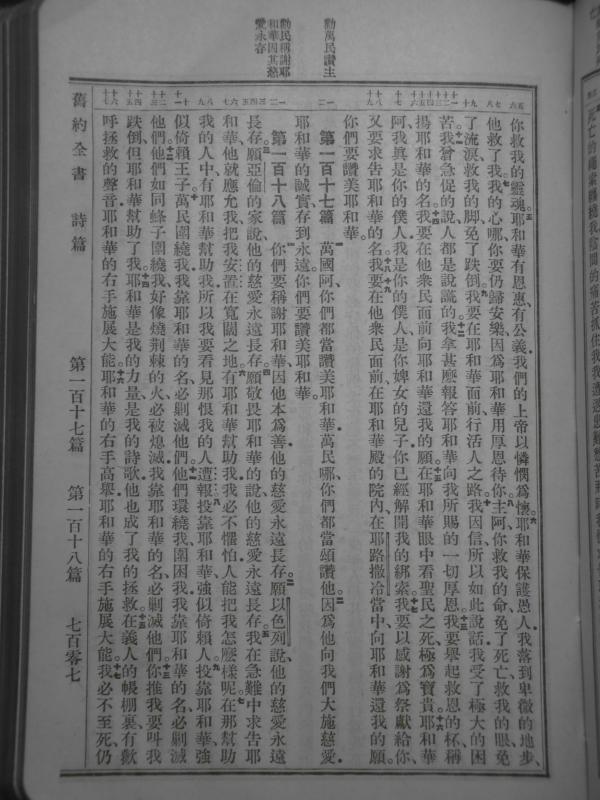 勸萬民讚主
勸民稱謝耶
和華因其慈
愛永存
你救我的靈魂。耶和華有恩惠、有公義、我們的上帝以憐憫爲懷。耶和華保護愚人、我落到卑微的地步、
他救了我。我的心哪、你要仍歸安樂、因爲耶和華用厚恩待你。主阿、你救我的命免了死亡、救我的眼免
了流淚、救我的脚免了跌倒。我要在耶和華面前行活人之路。我因信、所以如此說話、我受了極大的困
苦。我曾急促的說、人都是說謊的。我拿甚麽報答耶和華向我所賜的一切厚恩。我要舉起救恩的杯、稱
揚耶和華的名。我要在他衆民面前向耶和華還我的願。在耶和華眼中看聖民之死極爲寶貴。耶和華
阿、我眞是你的僕人、我是你的僕人、是你婢女的兒子、你已經解開我的綁索。我要以感謝爲祭獻給你、
又要求告耶和華的名。我要在他衆民面前、在耶和華殿的院內、在耶路撒冷當中、向耶和華還我的願。
你們要讚美耶和華。
第一百十七篇 萬國阿、你們都當讚美耶和華、萬民哪、你們都當頌讚他。因爲他向我們大施慈愛、
耶和華的誠實存到永遠。你們要讚美耶和華。
第一百十八篇 你們要稱謝耶和華、因他本爲善、他的慈愛永遠長存。願以色列說、他的慈愛永遠
長存。願亞倫的家說、他的慈愛永遠長存。願敬畏耶和華的說、他的慈愛永遠長存。我在急難中求告耶
和華、他就應允我、把我安置在寬闊之地。有耶和華幫助我、我必不懼怕、人能把我怎麽樣呢。在那幫助
我的人中、有耶和華幫助我、所以我要看見那恨我的人遭報。投靠耶和華、強似倚賴人。投靠耶和華、強
似倚賴王子。萬民圍繞我、我靠耶和華的名、必剿滅他們。他們環繞我、圍困我、我靠耶和華的名、必剿滅
他們。他們如同蜂子圍繞我、好像燒荆棘的火、必被熄滅、我靠耶和華的名、必剿滅他們。你推我、要叫我
跌倒、但耶和華幫助了我。耶和華是我的力量、是我的詩歌、他也成了我的拯救。在義人的帳棚裏、有歡
呼拯救的聲音、耶和華的右手施展大能。耶和華的右手高舉、耶和華的右手施展大能。我必不至死、仍
舊約全書 詩篇 第一百十七篇 第一百十八篇 七百零七